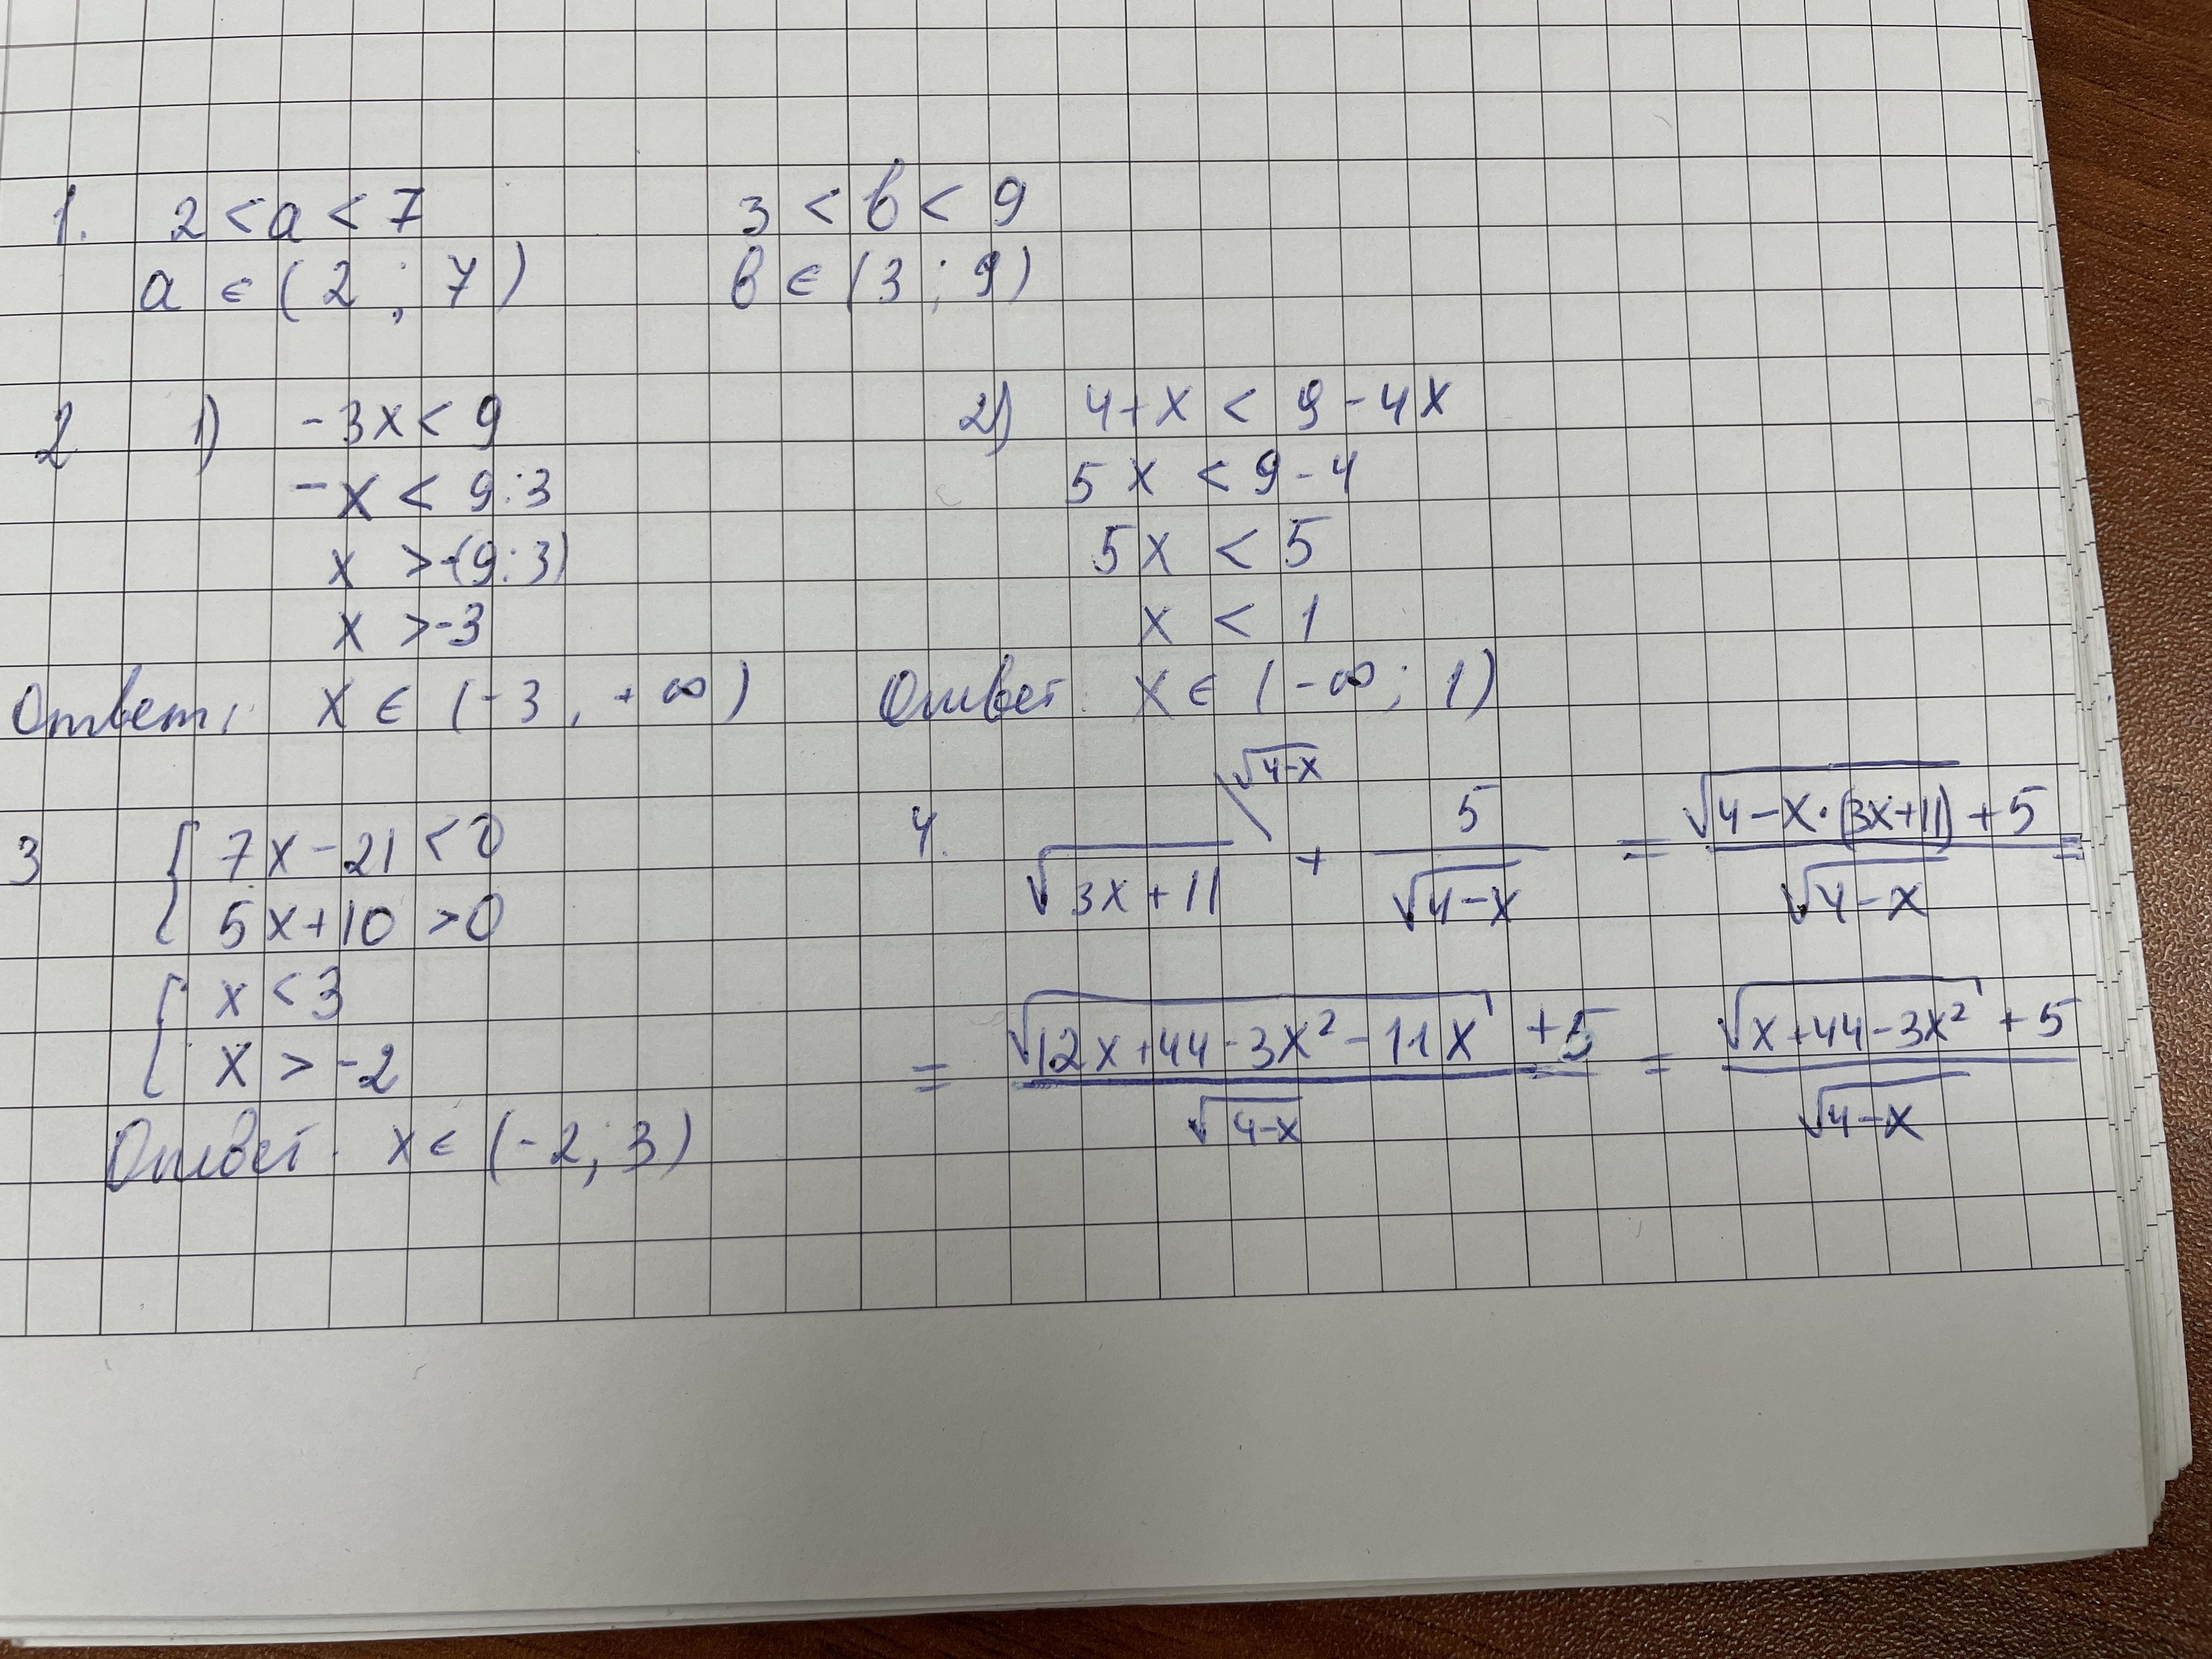 1. 2 < a < 7 3 < b < 9
a ∈ (2 ; 7) b ∈ (3 ; 9)
2 1) -3x < 9
-x < 9:3
x > -(9:3)
x > -3
Ответ: x ∈ (-3, +∞)
2) 4+x < 9-4x
5x < 9-4
5x < 5
x < 1
Ответ: x ∈ (-∞; 1)
3 { 7x-21 < 0
5x+10 > 0
{ x < 3
x > -2
Ответ: x ∈ (-2; 3)
4. √(3x+11) \√(4-x) + 5/√(4-x) = (√(4-x·(3x+11)) + 5)/√(4-x) =
= (√(12x+44-3x²-11x) + 5)/√(4-x) = (√(x+44-3x²) + 5)/√(4-x)